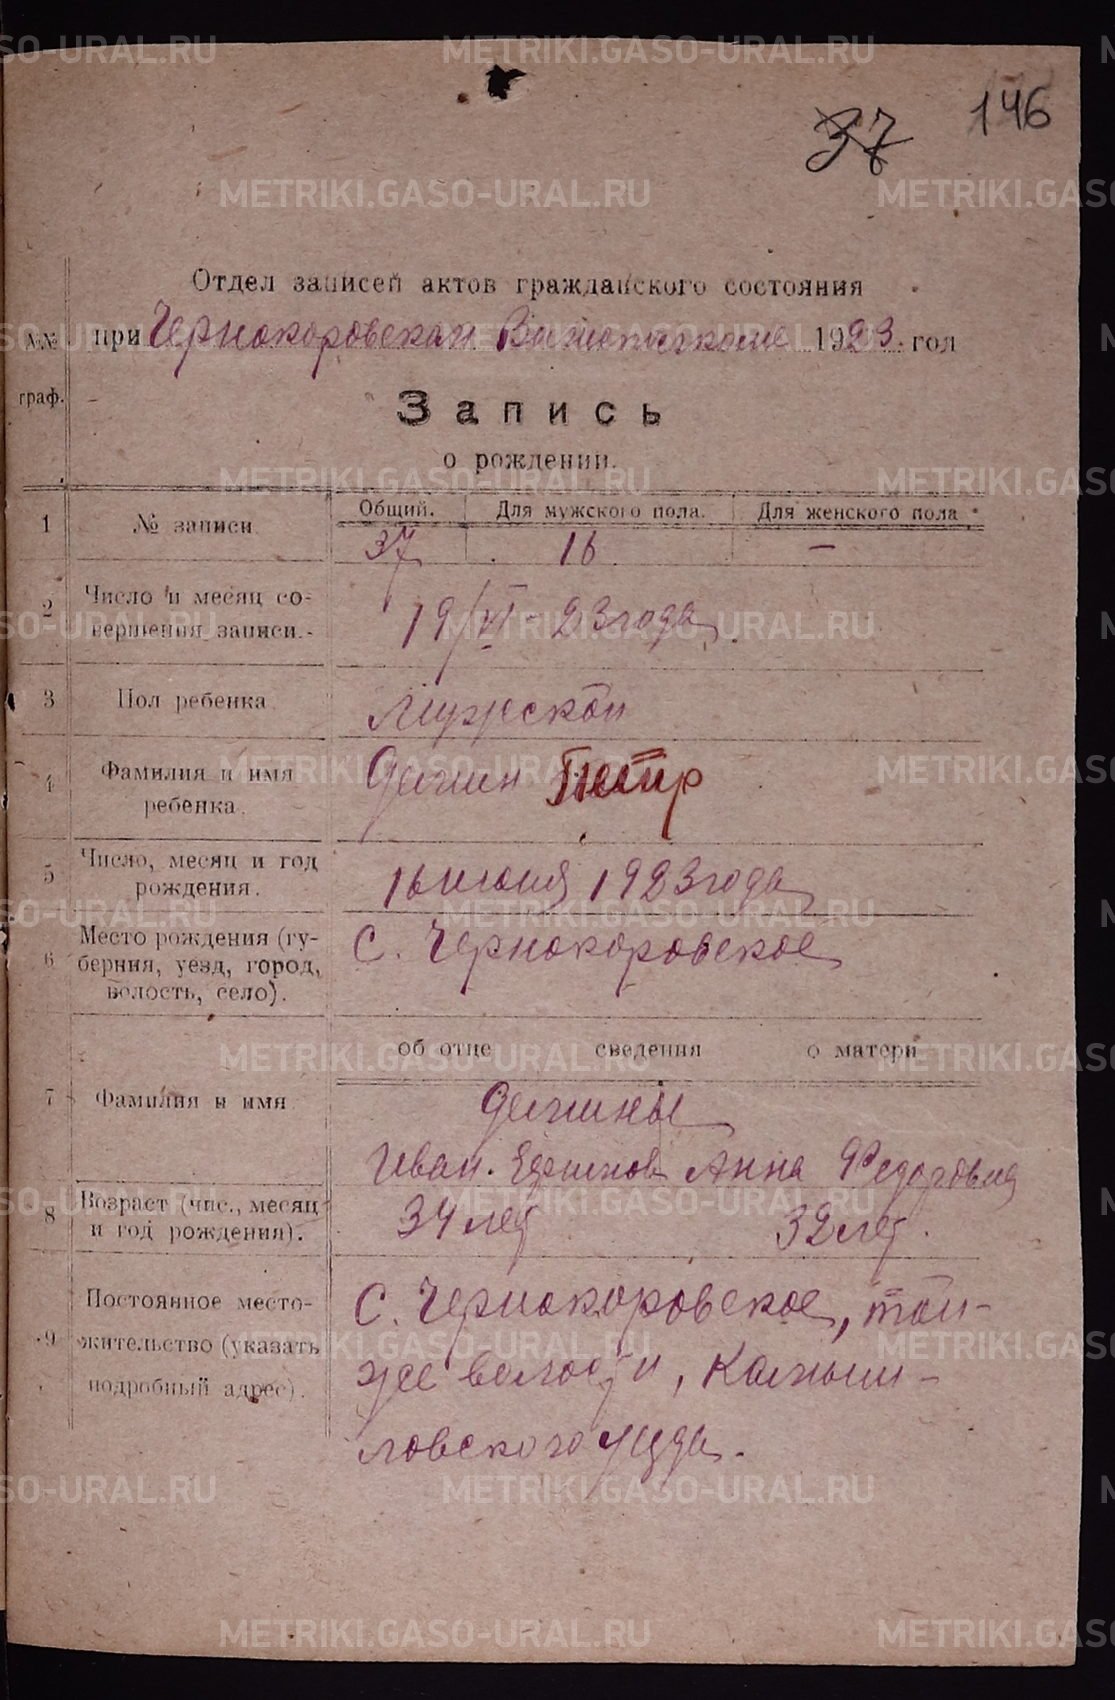 37 146
Отдел записей актов гражданского состояния
при Чернокоровском Волисполкоме 1923 год
№№
граф.
Запись
о рождении.
1 № записи Общий. Для мужского пола. Для женского пола
37 16 —
2 Число и месяц со-
вершения записи. 19/VI-23 года
3 Пол ребенка Мужской
4 Фамилия и имя
ребенка. Петр
5 Число, месяц и год
рождения. 16 июня 1923 года
6 Место рождения (гу-
берния, уезд, город,
волость, село). С. Чернокоровское
об отце сведения о матери
7 Фамилия и имя
Иван. Ефимов Анна Федоровна
8 Возраст (чис., месяц
и год рождения). 34 лет 32 лет.
9 Постоянное место-
жительство (указать
подробный адрес).
С. Чернокоровское, той-
же волости, Камыш-
ловского уезда.
METRIKI.GASO-URAL.RU